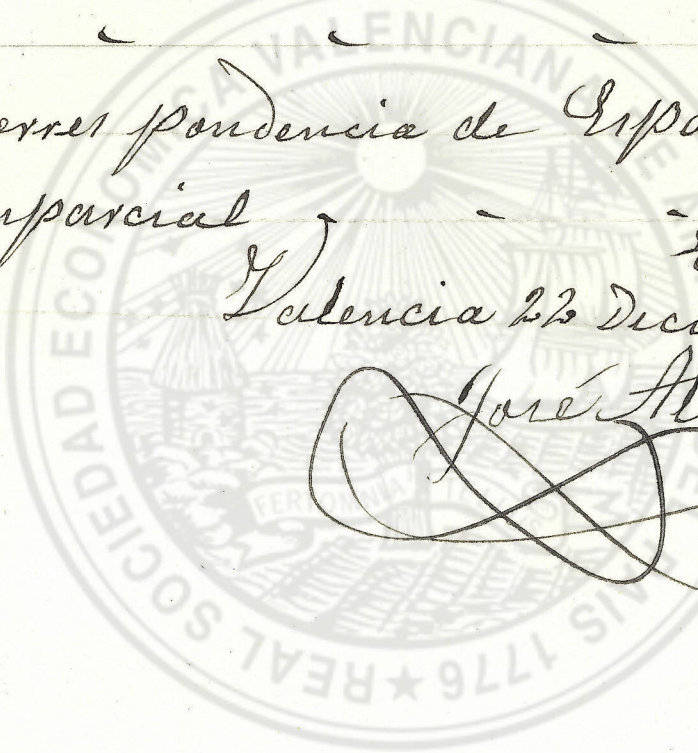 orres pondencia de Espa
mparcial
Valencia 22 Dice
José Al
REAL SOCIEDAD ECONOMICA VALENCIANA DE PAIS 1776